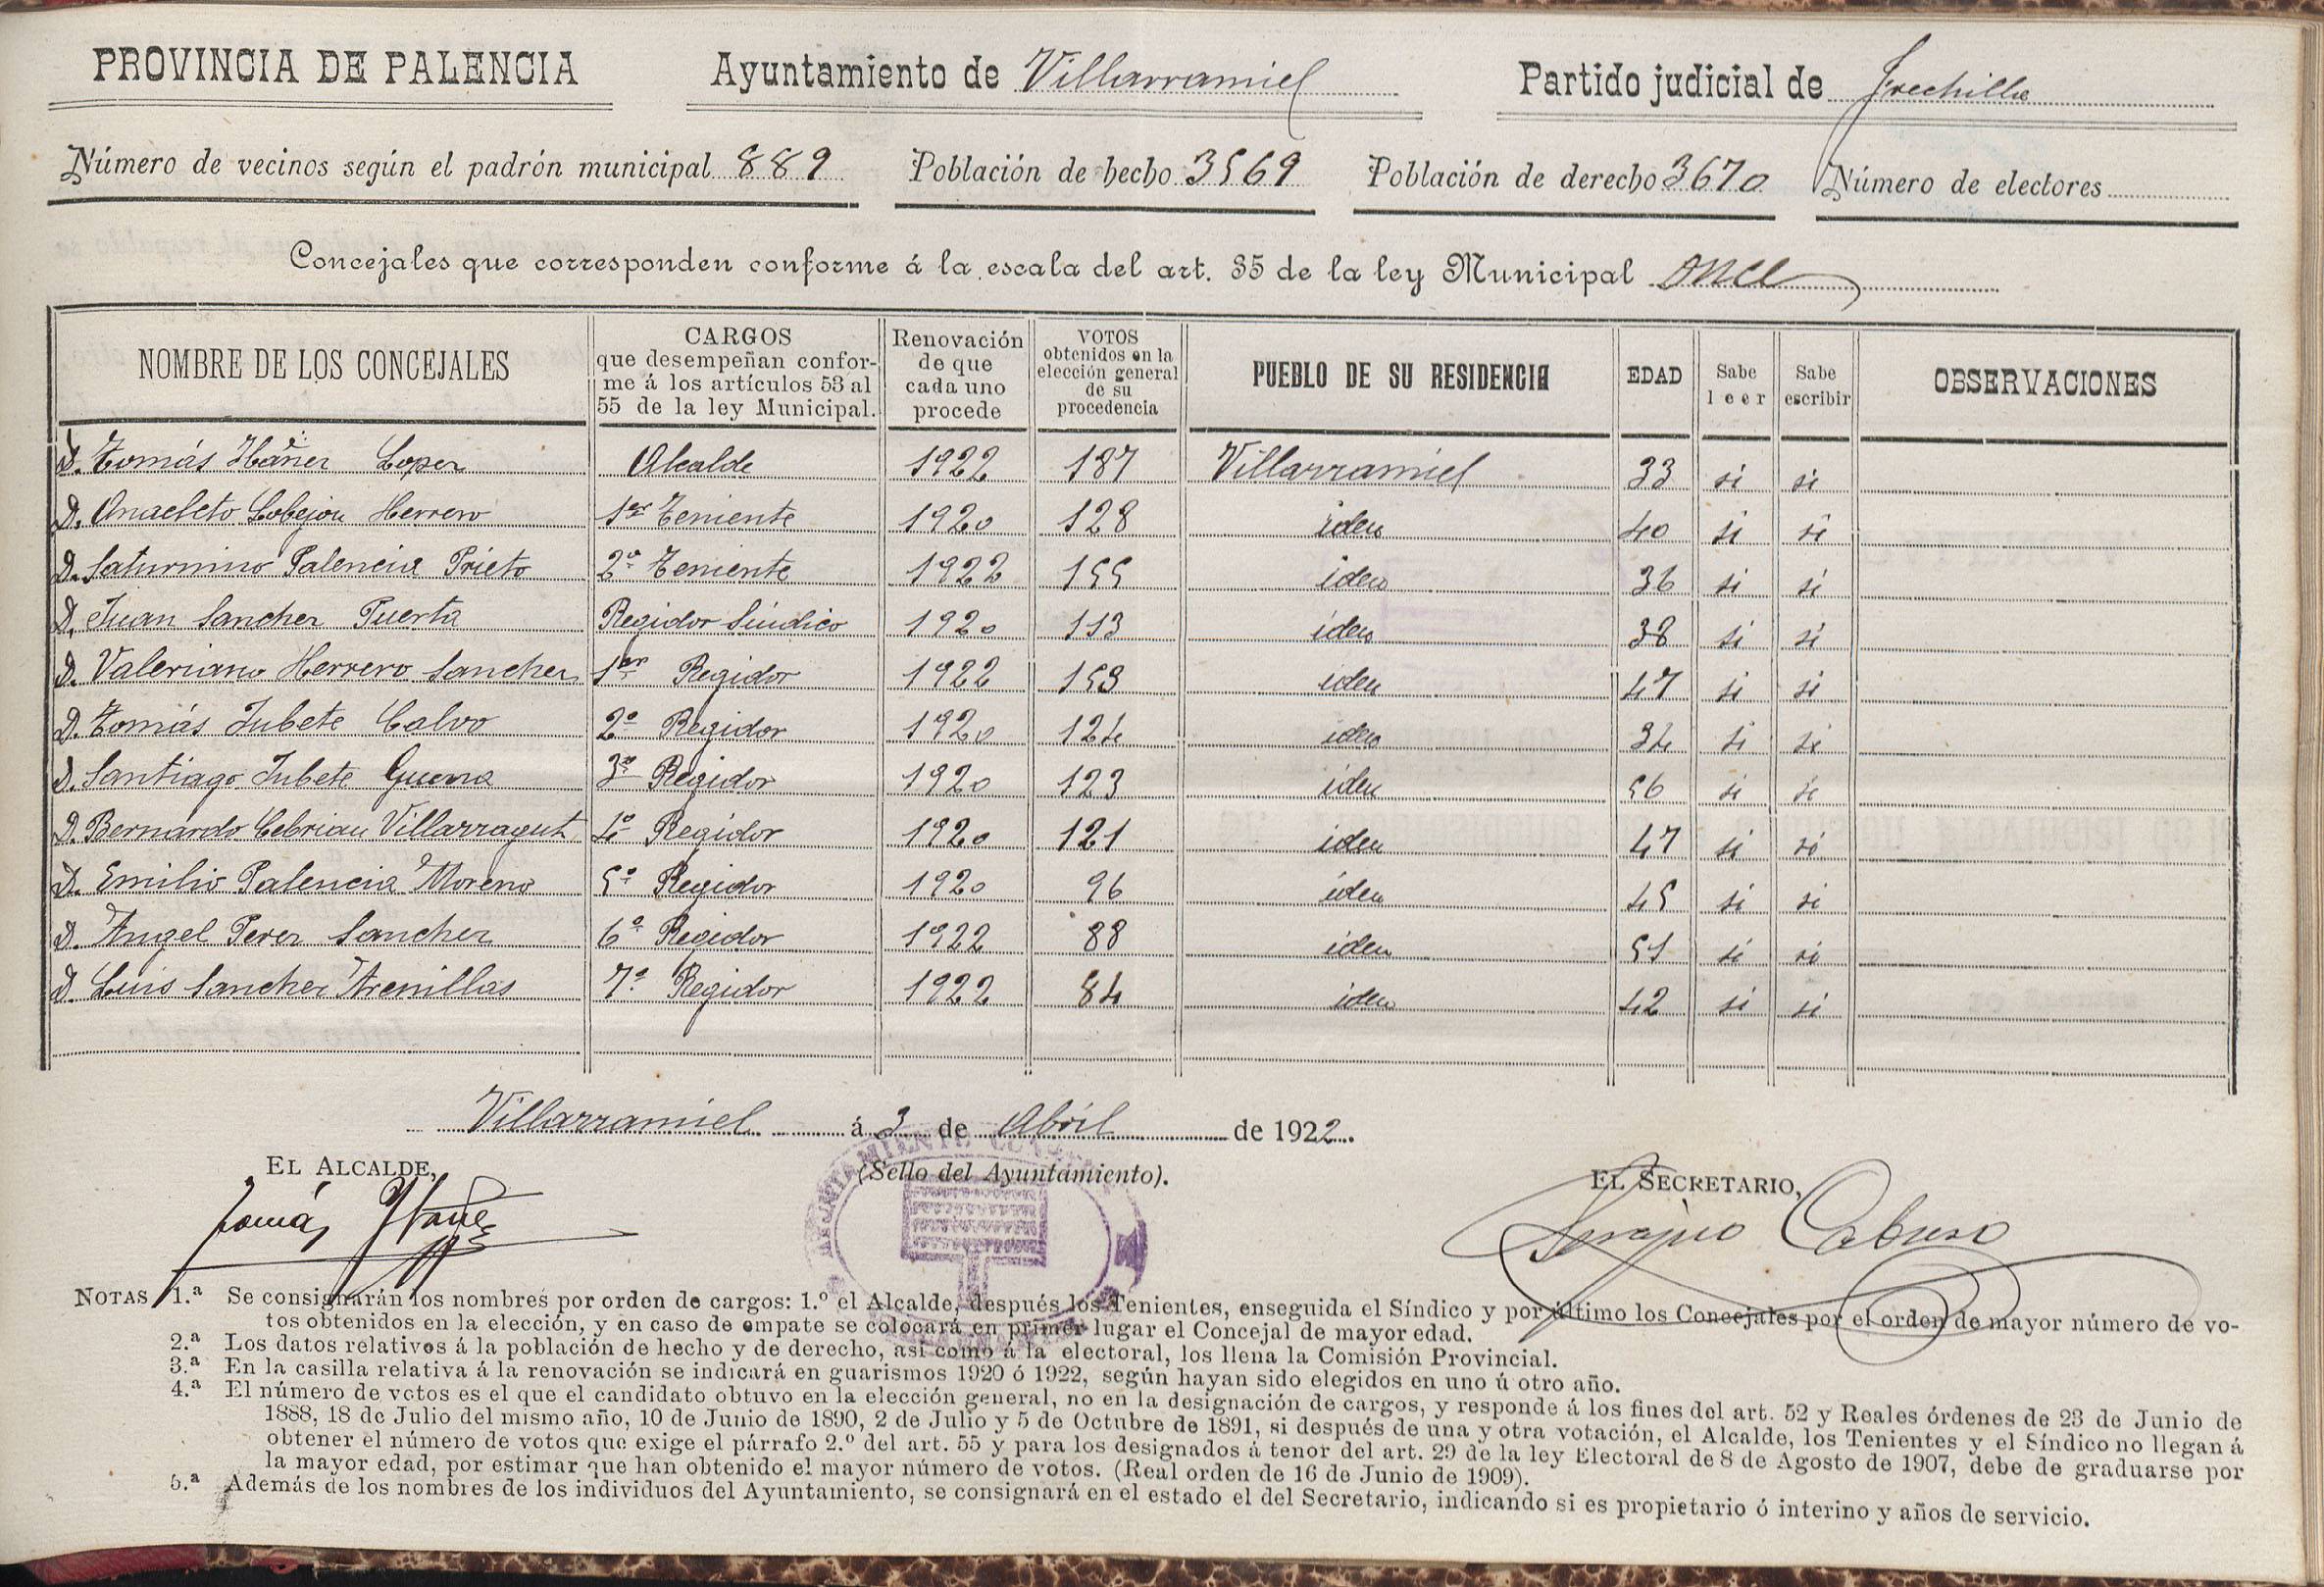 PROVINCIA DE PALENCIA Ayuntamiento de Villarramiel Partido judicial de Frechilla
Número de vecinos según el padrón municipal 889 Población de hecho 3569 Población de derecho 3670 Número de electores
Concejales que corresponden conforme á la escala del art. 35 de la ley Municipal once
NOMBRE DE LOS CONCEJALES
CARGOS
que desempeñan confor-
me á los artículos 53 al
55 de la ley Municipal.
Renovación
de que
cada uno
procede
VOTOS
obtenidos en la
elección general
de su
procedencia
PUEBLO DE SU RESIDENCIA
EDAD
Sabe
leer
Sabe
escribir
OBSERVACIONES
D. Tomás Ibáñez Lopez Alcalde 1922 187 Villarramiel 33 si si
D. Anacleto Lobejon Herrero 1er Teniente 1920 128 iden 40 si si
D. Saturnino Palencia Prieto 2º Teniente 1922 155 iden 36 si si
D. Juan Sanchez Puerta Regidor Síndico 1920 113 iden 38 si si
D. Valeriano Herrero Sanchez 1er Regidor 1922 153 iden 47 si si
D. Tomás Tubete Calvo 2º Regidor 1920 124 iden 34 si si
D. Santiago Tubete Guerra 3er Regidor 1920 123 iden 56 si si
D. Bernardo Cebrian Villarragut 4º Regidor 1920 121 iden 47 si si
D. Emilio Palencia Moreno 5º Regidor 1920 96 iden 45 si si
D. Angel Perez Sanchez 6º Regidor 1922 88 iden 51 si si
D. Luis Sanchez Arenillas 7º Regidor 1922 84 iden 42 si si
Villarramiel á 3 de Abril de 1922.
EL ALCALDE, (Sello del Ayuntamiento). EL SECRETARIO,
Tomás Ibañez
NOTAS 1.ª Se consignarán los nombres por orden de cargos: 1.º el Alcalde, después los Tenientes, enseguida el Síndico y por último los Concejales por el orden de mayor número de vo-
tos obtenidos en la elección, y en caso de empate se colocará en primer lugar el Concejal de mayor edad.
2.ª Los datos relativos á la población de hecho y de derecho, así como á la electoral, los llena la Comisión Provincial.
3.ª En la casilla relativa á la renovación se indicará en guarismos 1920 ó 1922, según hayan sido elegidos en uno ú otro año.
4.ª El número de votos es el que el candidato obtuvo en la elección general, no en la designación de cargos, y responde á los fines del art. 52 y Reales órdenes de 23 de Junio de
1888, 18 de Julio del mismo año, 10 de Junio de 1890, 2 de Julio y 5 de Octubre de 1891, si después de una y otra votación, el Alcalde, los Tenientes y el Síndico no llegan á
obtener el número de votos que exige el párrafo 2.º del art. 55 y para los designados á tenor del art. 29 de la ley Electoral de 8 de Agosto de 1907, debe de graduarse por
la mayor edad, por estimar que han obtenido el mayor número de votos. (Real orden de 16 de Junio de 1909).
5.ª Además de los nombres de los individuos del Ayuntamiento, se consignará en el estado el del Secretario, indicando si es propietario ó interino y años de servicio.